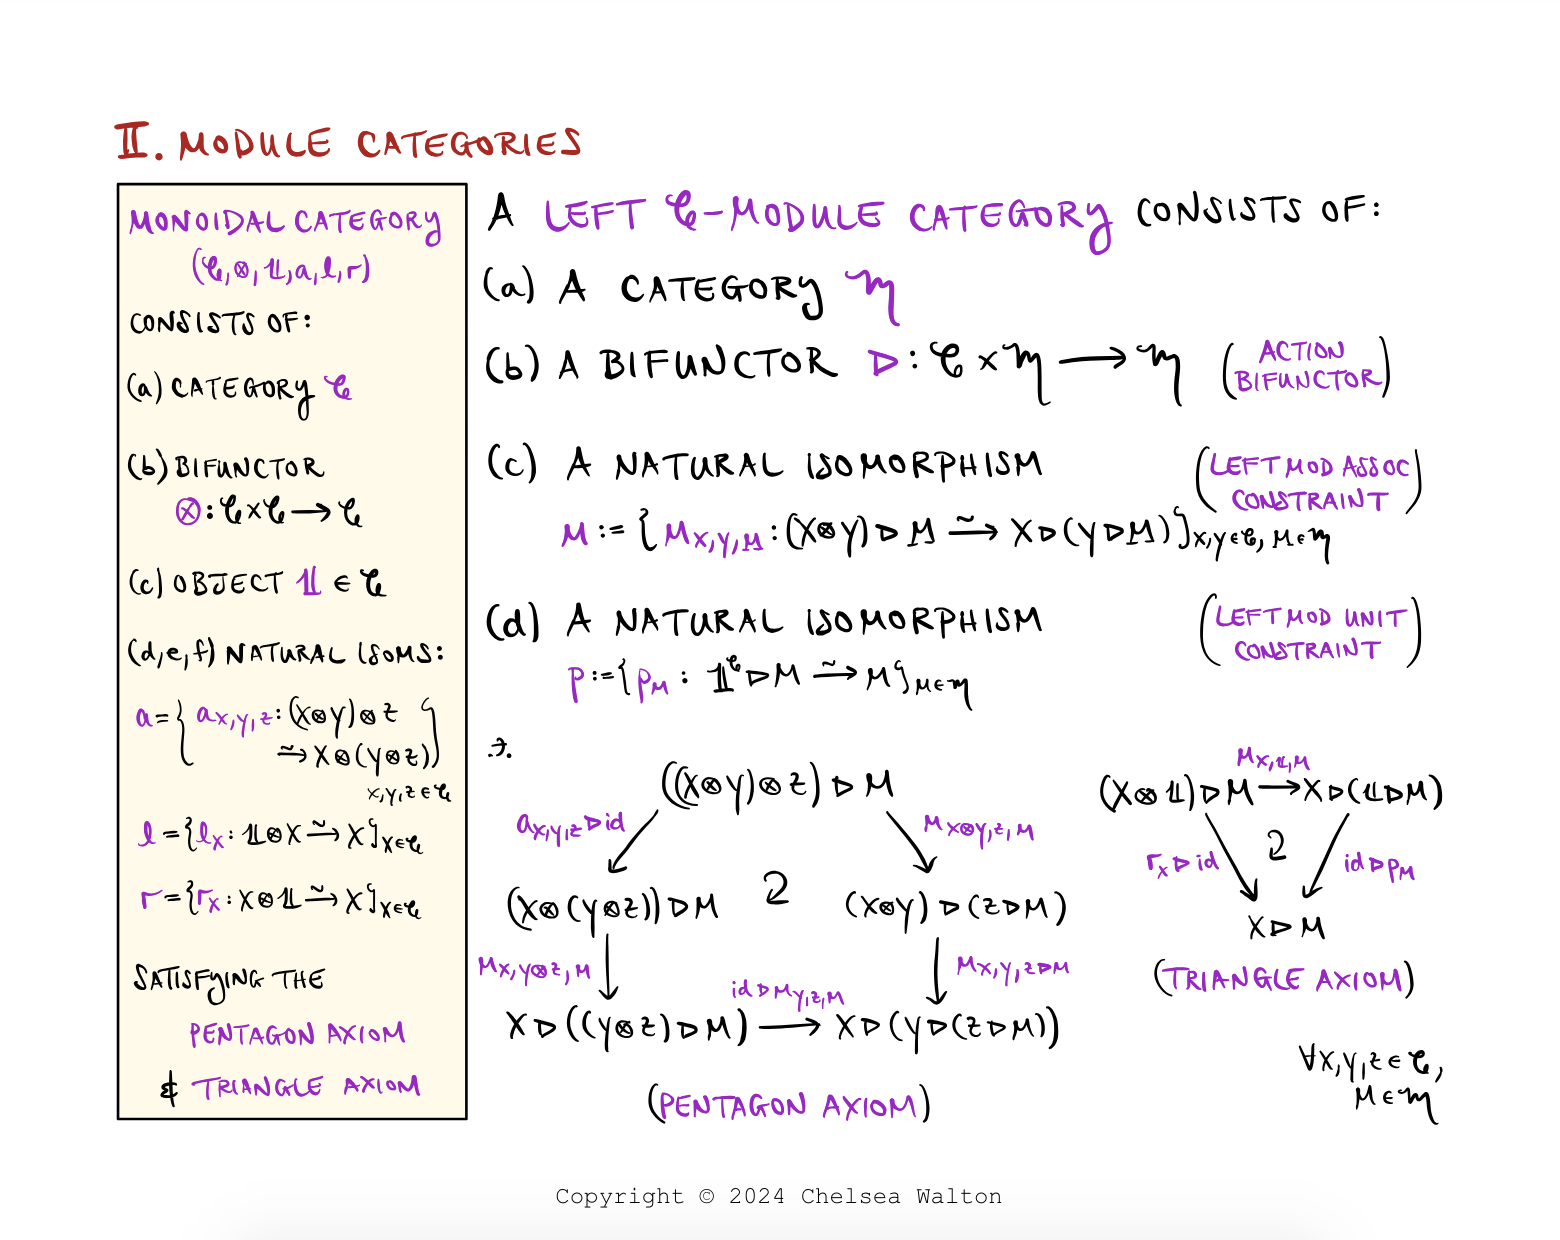 II. MODULE CATEGORIES
MONOIDAL CATEGORY
(𝒞, ⊗, 𝟙, a, l, r)
CONSISTS OF:
(a) CATEGORY 𝒞
(b) BIFUNCTOR
⊗ : 𝒞 × 𝒞 ⟶ 𝒞
(c) OBJECT 𝟙 ∈ 𝒞
(d,e,f) NATURAL ISOMS:
a = { a_{X,Y,Z} : (X⊗Y)⊗Z
⥲ X⊗(Y⊗Z) }
X,Y,Z ∈ 𝒞
l = { l_X : 𝟙⊗X ⥲ X }_{X∈𝒞}
r = { r_X : X⊗𝟙 ⥲ X }_{X∈𝒞}
SATISFYING THE
PENTAGON AXIOM
& TRIANGLE AXIOM
A LEFT 𝒞-MODULE CATEGORY CONSISTS OF:
(a) A CATEGORY ℳ
(b) A BIFUNCTOR ▷ : 𝒞 × ℳ ⟶ ℳ
(ACTION
BIFUNCTOR)
(c) A NATURAL ISOMORPHISM
(LEFT MOD ASSOC
CONSTRAINT)
M := { M_{X,Y,M} : (X⊗Y) ▷ M ⥲ X ▷ (Y ▷ M) }_{X,Y∈𝒞, M∈ℳ}
(d) A NATURAL ISOMORPHISM
(LEFT MOD UNIT
CONSTRAINT)
p := { p_M : 𝟙^𝒞 ▷ M ⥲ M }_{M∈ℳ}
∋.
((X⊗Y)⊗Z) ▷ M
a_{X,Y,Z} ▷ id
M_{X⊗Y,Z,M}
(X⊗(Y⊗Z)) ▷ M
(X⊗Y) ▷ (Z ▷ M)
M_{X,Y⊗Z,M}
M_{X,Y,Z▷M}
id ▷ M_{Y,Z,M}
X ▷ ((Y⊗Z) ▷ M) ⟶ X ▷ (Y ▷ (Z ▷ M))
(PENTAGON AXIOM)
M_{X,𝟙,M}
(X⊗𝟙) ▷ M ⟶ X ▷ (𝟙 ▷ M)
r_X ▷ id
id ▷ p_M
X ▷ M
(TRIANGLE AXIOM)
∀X,Y,Z ∈ 𝒞,
M ∈ ℳ
Copyright © 2024 Chelsea Walton